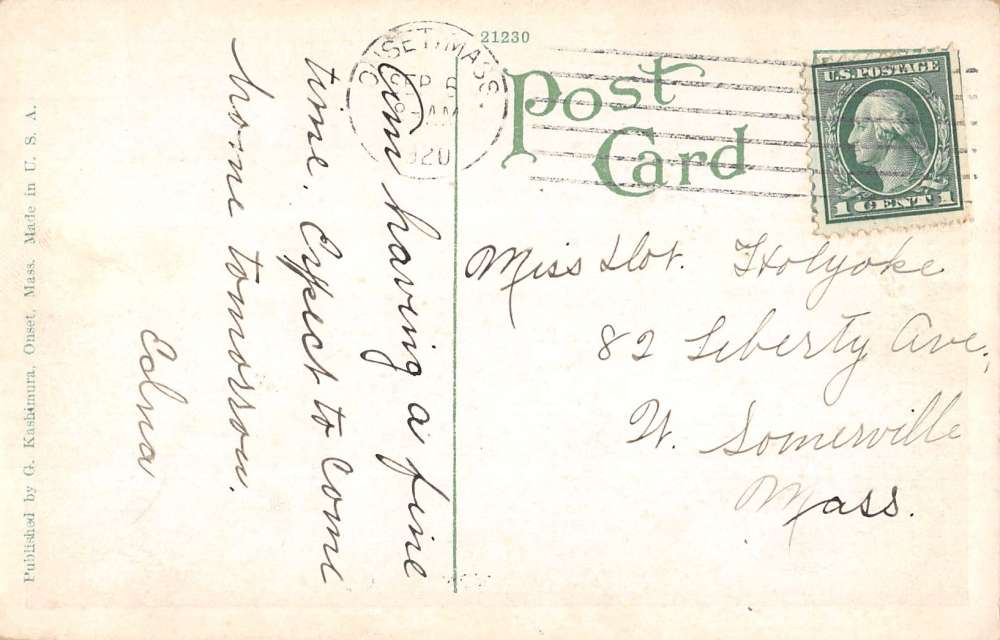 21230
Post
Card
ONSET, MASS.
SEP 5
AM
1920
U.S. POSTAGE
1 CENT 1
Am having a fine
time. Expect to come
home tomorrow.
Edna
Miss Dot. Holyoke
82 Liberty Ave.
W. Somerville
Mass.
Published by G. Kashimura, Onset, Mass. Made in U. S. A.